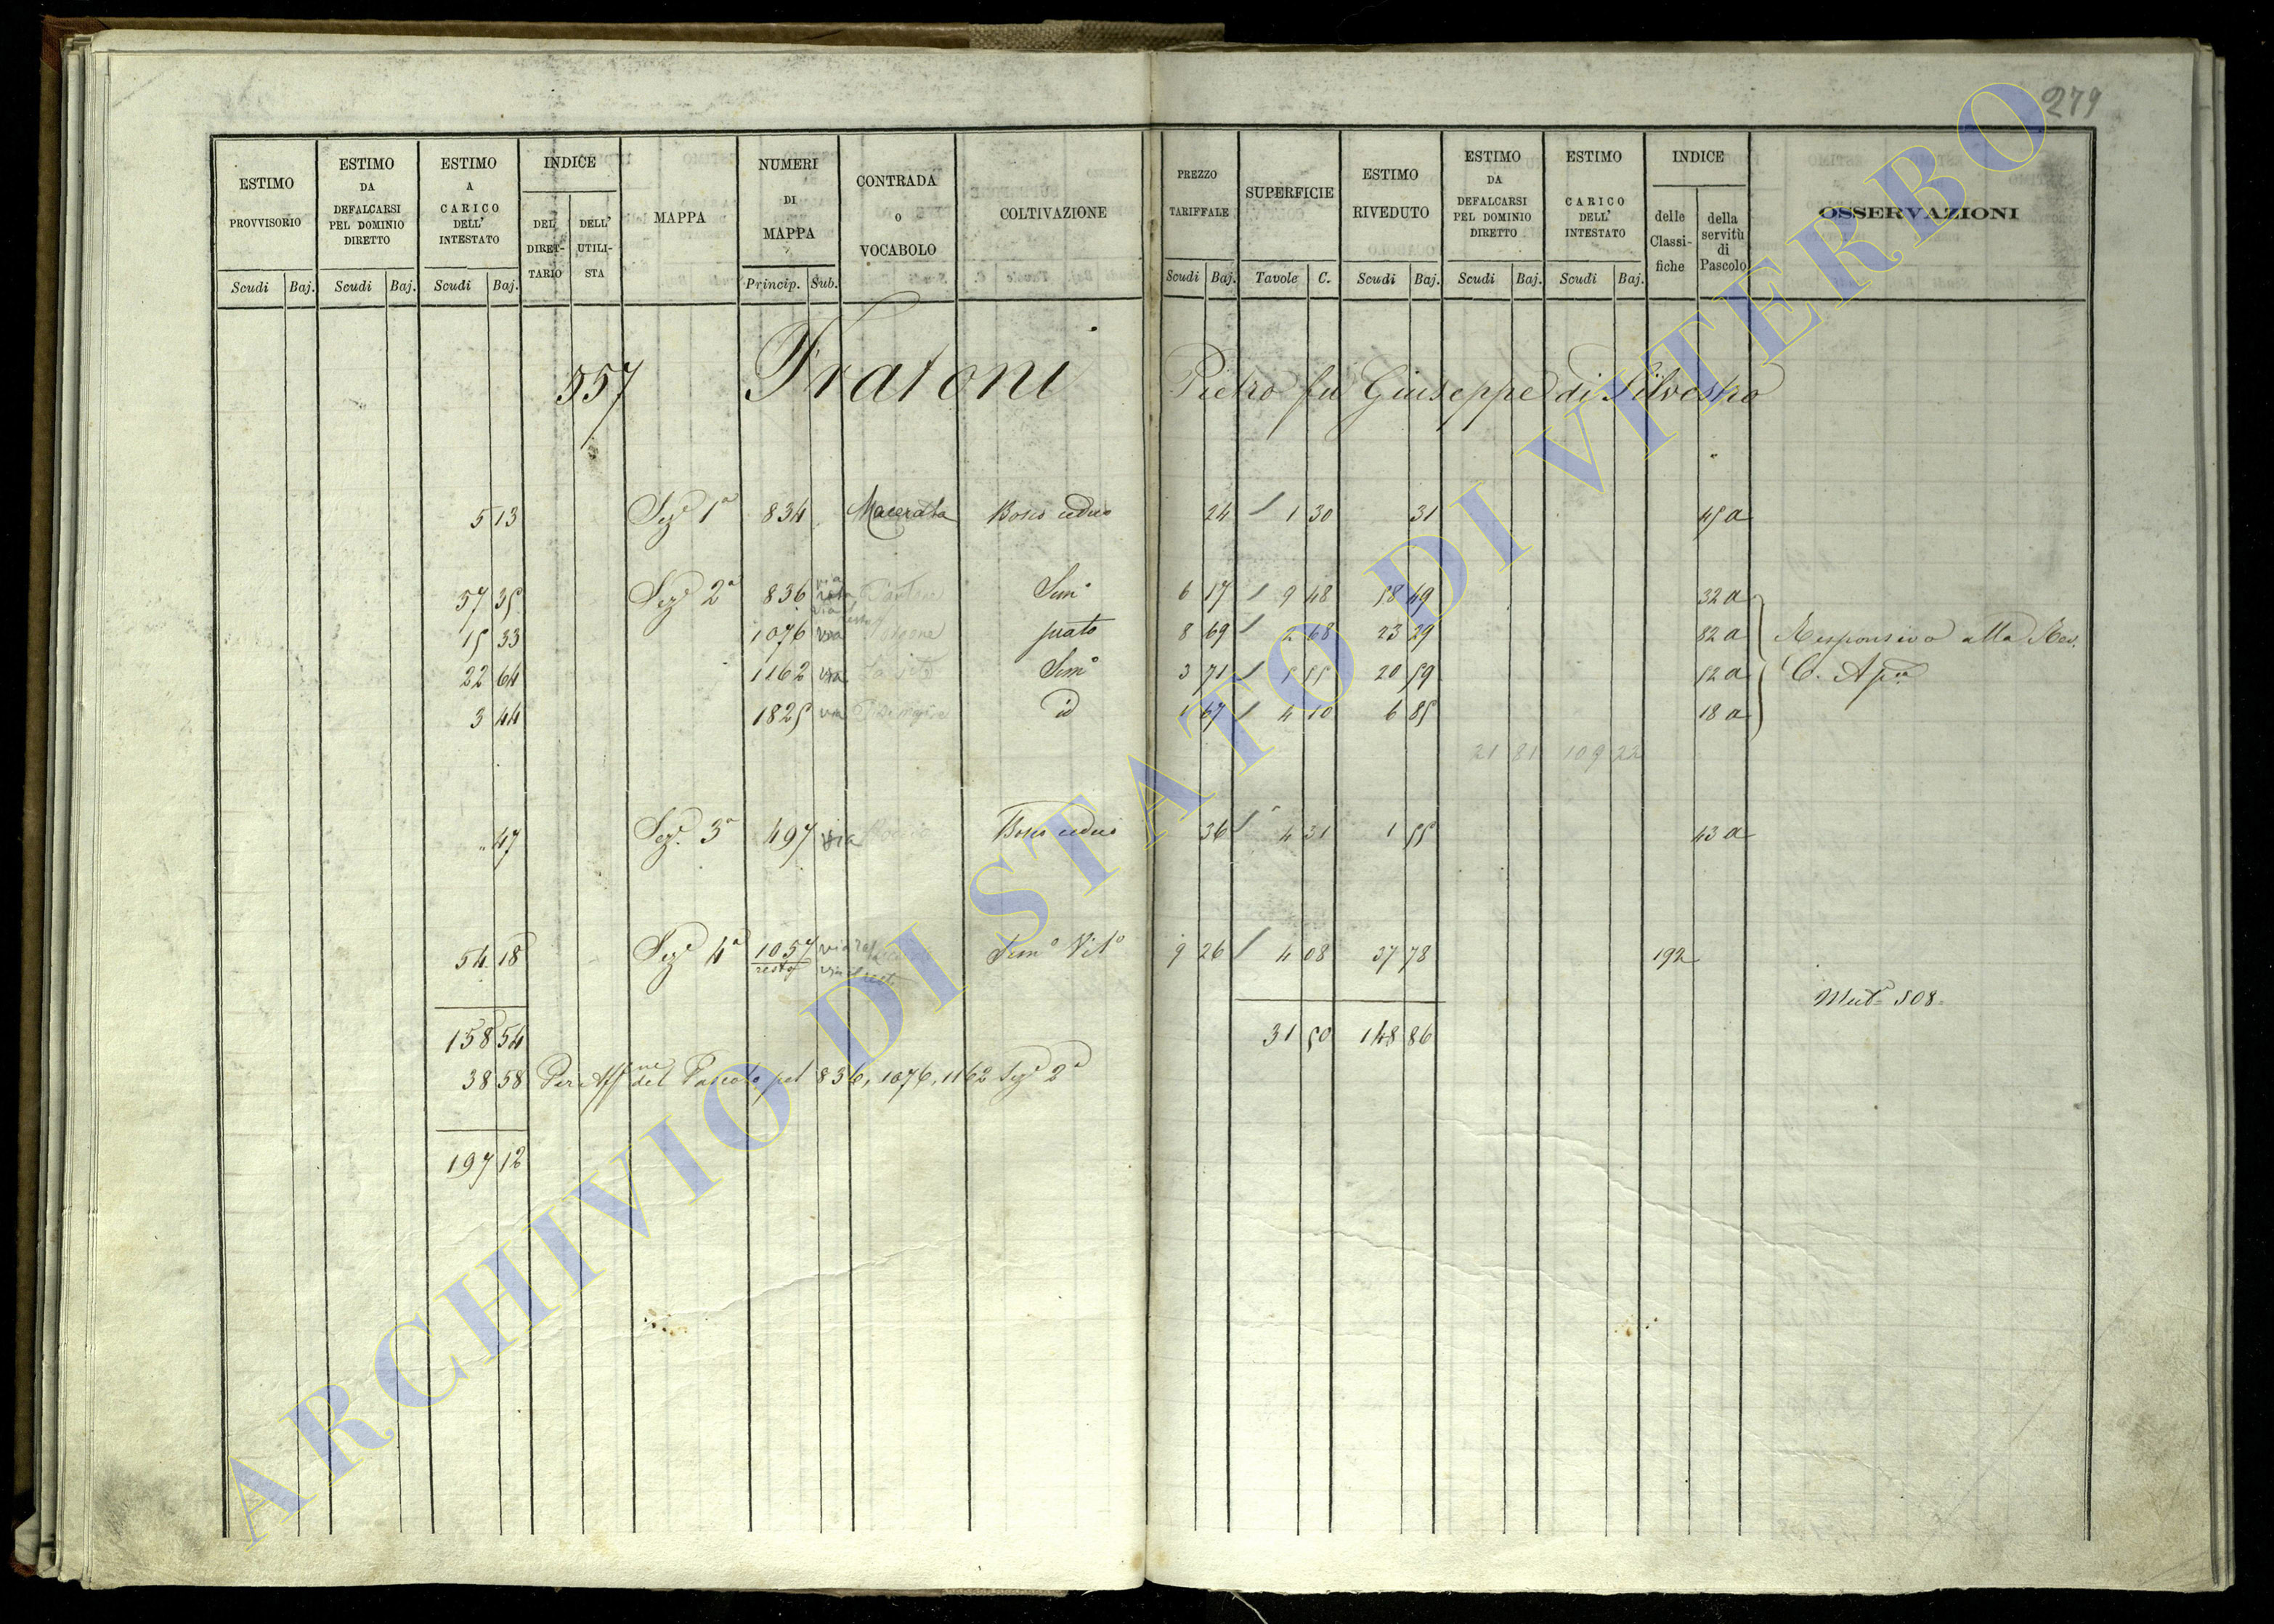 279
ESTIMO PROVVISORIO
ESTIMO DA DEFALCARSI PEL DOMINIO DIRETTO
ESTIMO A CARICO DELL' INTESTATO
INDICE
DEL DIRET-TARIO
DELL' UTILI-STA
MAPPA
NUMERI DI MAPPA
CONTRADA o VOCABOLO
COLTIVAZIONE
PREZZO TARIFFALE
SUPERFICIE
ESTIMO RIVEDUTO
ESTIMO DA DEFALCARSI PEL DOMINIO DIRETTO
ESTIMO CARICO DELL' INTESTATO
INDICE
delle Classi-fiche
della servitù di Pascolo
OSSERVAZIONI
Scudi Baj. Scudi Baj. Scudi Baj. Princip. Sub. Scudi Baj. Tavole C. Scudi Baj. Scudi Baj. Scudi Baj.
557 Fratoni Pietro fu Giuseppe di Silvestro
5 13 Sez.e 1a 834 Macerata Bosco ceduo 24 1 30 31 45 a
57 35 Sez.e 2a 836 via Sem.o 6 17 9 48 58 49 32 a
15 33 1076 via prato 8 69 2 68 23 29 82 a Responsivo alla Rev.
22 64 1162 via Sem.o 3 71 5 55 20 59 52 a C. Ap.ca
3 44 1825 via id 1 67 4 10 6 85 18 a
21 81 109 22
" 47 Sez. 3a 497 via Bosco ceduo 36 4 31 1 55 43 a
54 18 Sez.e 4a 1057 resto Sem.o Vit.o 9 26 4 08 37 78 192
Mut.a 508
158 54 31 50 148 86
38 58 Per Aff.ne del Pascolo pel 836, 1076, 1162 Sez.e 2a
197 12
ARCHIVIO DI STATO DI VITERBO